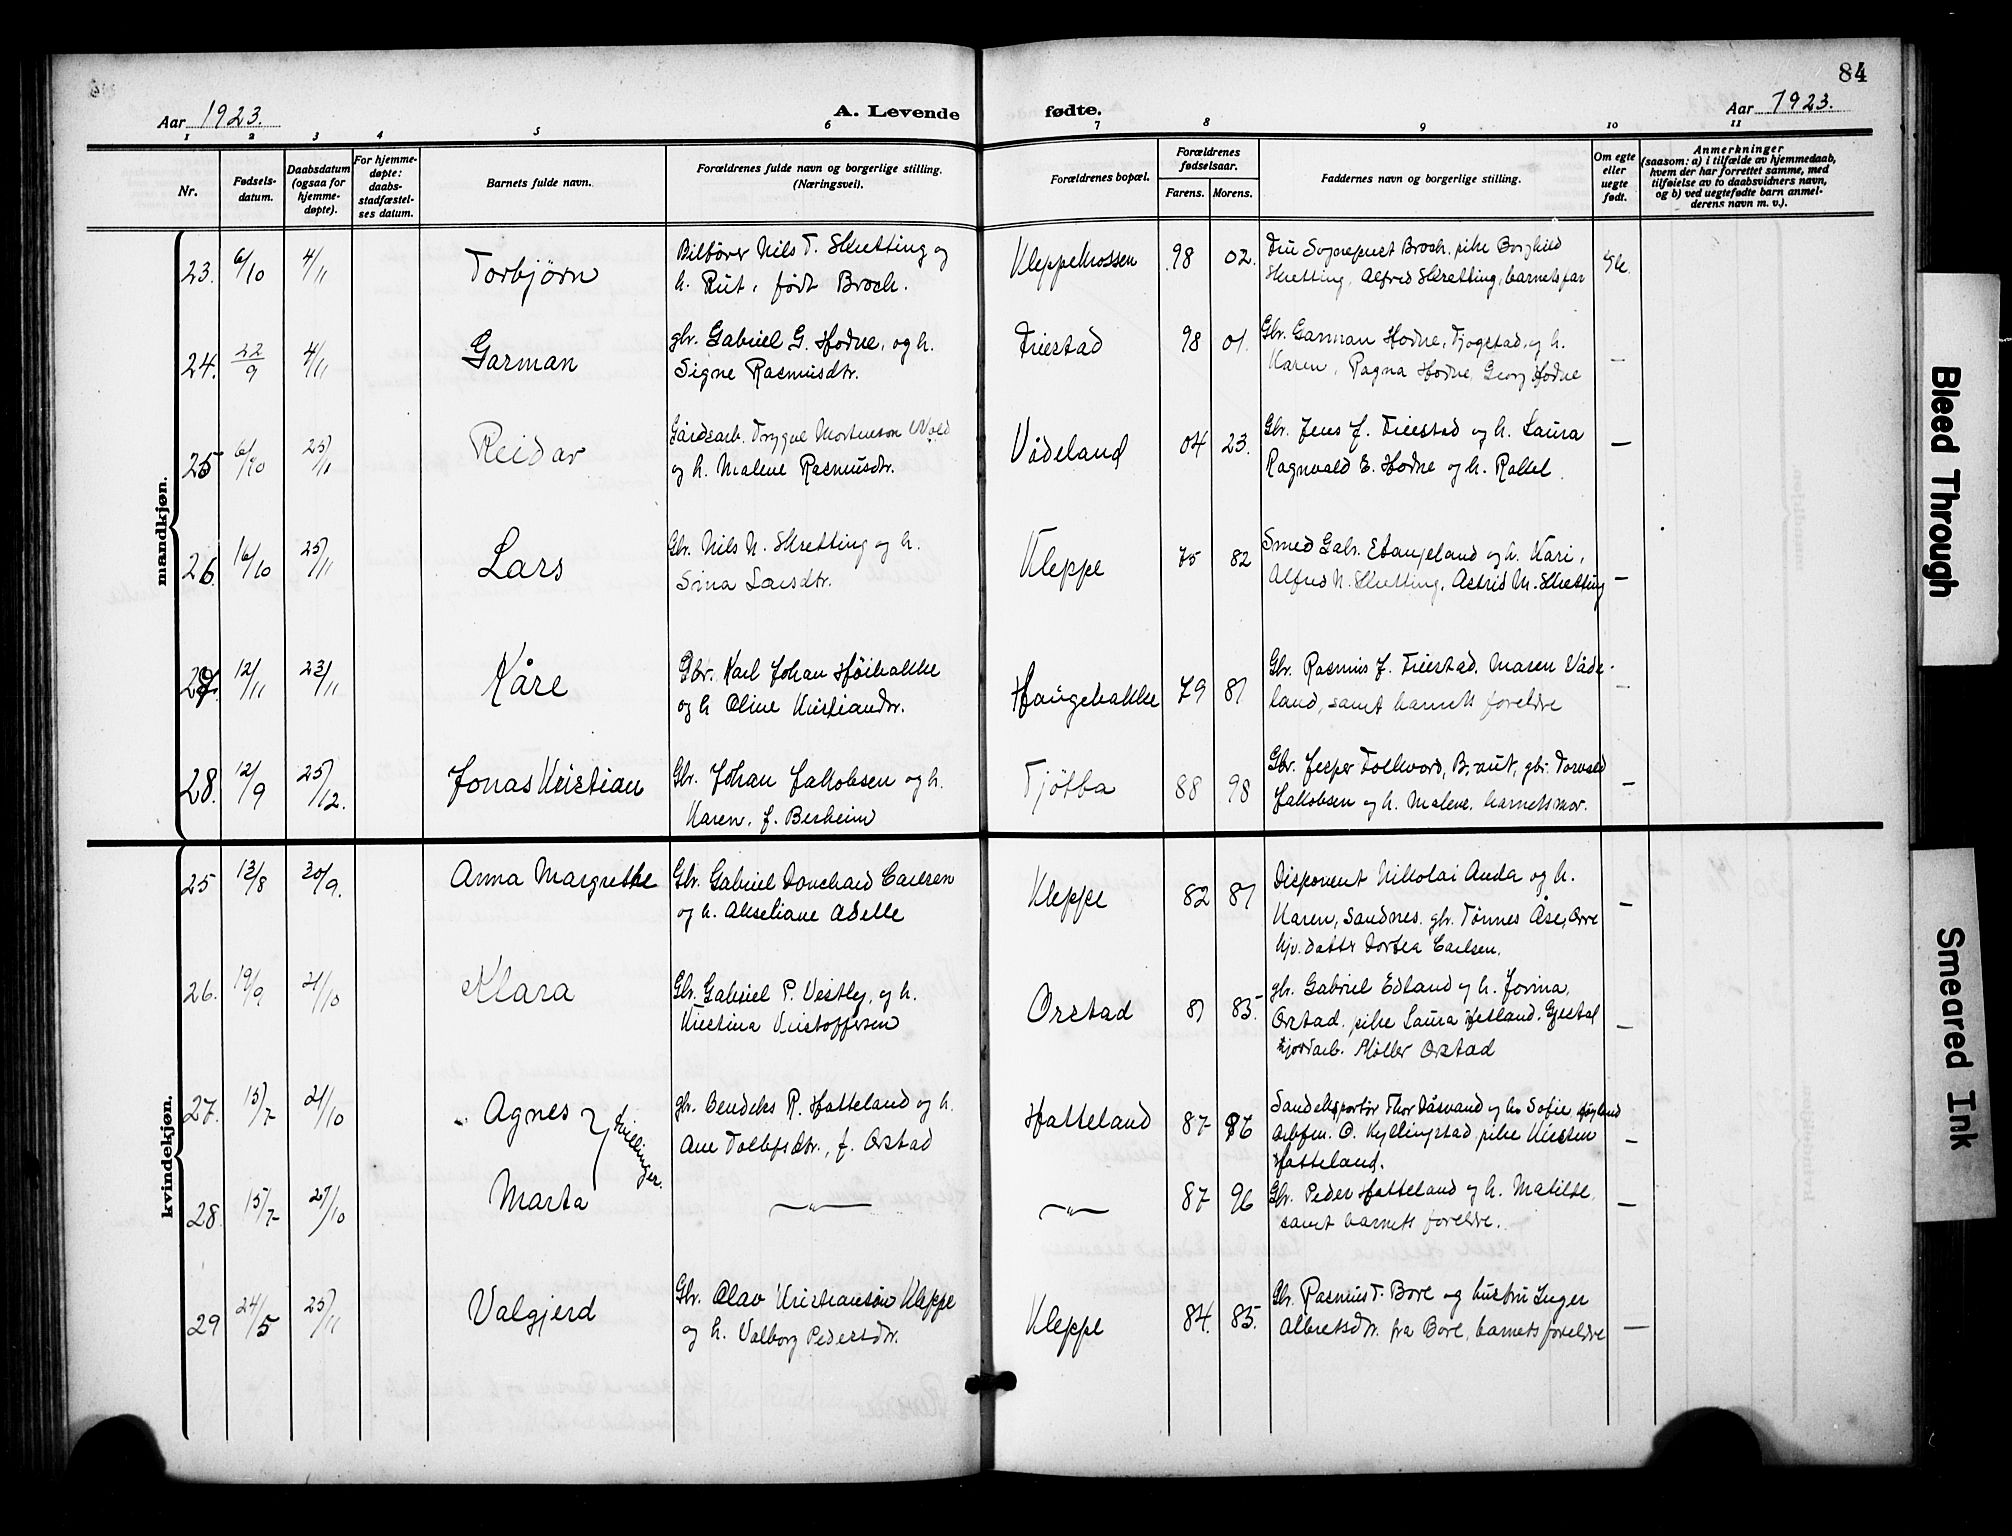 84
Aar 1923.
A. Levende fødte.
Aar 1923.
1 2 3 4 5 6 7 8 9 10 11
Nr.
Fødsels-
datum.
Daabsdatum
(ogsaa for
hjemme-
døpte).
For hjemme-
døpte:
daabs-
stadfæstel-
ses datum.
Barnets fulde navn.
Forældrenes fulde navn og borgerlige stilling.
(Næringsvei).
Forældrenes bopæl.
Forældrenes
fødselsaar.
Farens. Morens.
Faddernes navn og borgerlige stilling.
Om egte
eller
uegte
født.
Anmerkninger
(saasom: a) i tilfælde av hjemmedaab,
hvem der har forrettet samme, med
tilføielse av to daabsvidners navn,
og b) ved uegtefødte barn anmel-
derens navn m. v.).
mandkjøn.
23. 6/10 4/11 Torbjørn
Bilfører Nils T. Skretting og
h. Rut, født Broch.
Kleppekrossen 98 02.
Fru Sogneprest Broch, pike Borghild
Skretting, Alfred Skretting, barnets far
24. 22/9 4/11 Garman
gbr. Gabriel G. Hodne, og h.
Signe Rasmusdtr.
Friestad 98 01.
Gbr. Garman Hodne, Tjøgstad, og h.
Karen, Ragna Hodne, Georg Hodne
—
25 6/10 25/11 Reidar
Gårdsarb. Trygve Mortenson Wold
og h. Malene Rasmusdtr.
Vådeland 04 23.
Gbr. Jens J. Friestad og h. Laura
Ragnvald E. Hodne og h. Rakel.
—
26. 16/10 25/11 Lars
Gbr. Nils N. Skretting og h.
Sina Larsdtr.
Kleppe 75 82
Smed Gabr. Etangeland og h. Kari,
Alfred N. Skretting, Astrid M. Skretting
—
27. 12/11 23/11 Kåre
Gbr. Karl Johan Høibakke
og h Oline Kristiandtr.
Haugebakke 79 81
Gbr. Rasmus J. Friestad, Maren Våde-
land, samt barnets foreldre
—
28. 12/9 25/12. Jonas Kristian
Gbr. Johan Jakobsen og h.
Karen, f. Berheim
Tjøtta 88 98
Gbr. Jesper Folkvord, B, gbr. Torvald
Jakobsen og h. Malene, barnets mor.
—
kvindekjøn.
25 13/8 30/9. Anna Margrethe
Gbr. Gabriel Bouchard Carlsen
og h. Akseliane Adelle
Kleppe 82 87
Disponent Nikolai Anda og h.
Karen, Sandnes. gbr. Tønnes Åse, Orre
hjv. datter Dortea Carlsen.
—
26. 19/9 21/10 Klara
Gbr. Gabriel P. Vestly, og h.
Kristina Kristoffersen
Orstad 81 85
gbr. Gabriel Edland og h. Jorina,
Orstad, pike Laura Hetland, Gjestal
Møller Orstad
—
27. 15/7 21/10 Agnes
tvillinger.
gbr. Bendiks R. Hatteland og h.
Ane Tollefsdtr., f. Orstad
Hatteland 87 96
Sandeksportør Thor Dåsvand og h. Sofie, Høyland
O. Kyllingstad pike Kirsten
Hatteland.
—
28. 15/7 27/10 Marta
— " —
— " —
87 96
Gbr. Peder Hatteland og h. Matilde,
samt barnets foreldre.
—
29 24/5 25/11 Valgjerd
Gbr. Olav Kristiansøn Kleppe
og h. Valborg Pedersdtr.
Kleppe 84. 85.
Gbr. Rasmus T. Bore og hustru Inger
Albretsdtr. fra Bore, barnets foreldre
—
Bleed Through
Smeared Ink